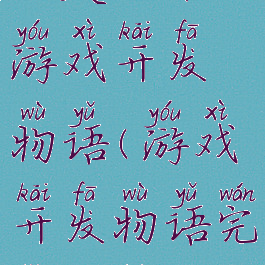 yóu xì kāi fā
游戏开发
wù yǔ yóu xì
物语(游戏
kāi fā wù yǔ wán
开发物语完